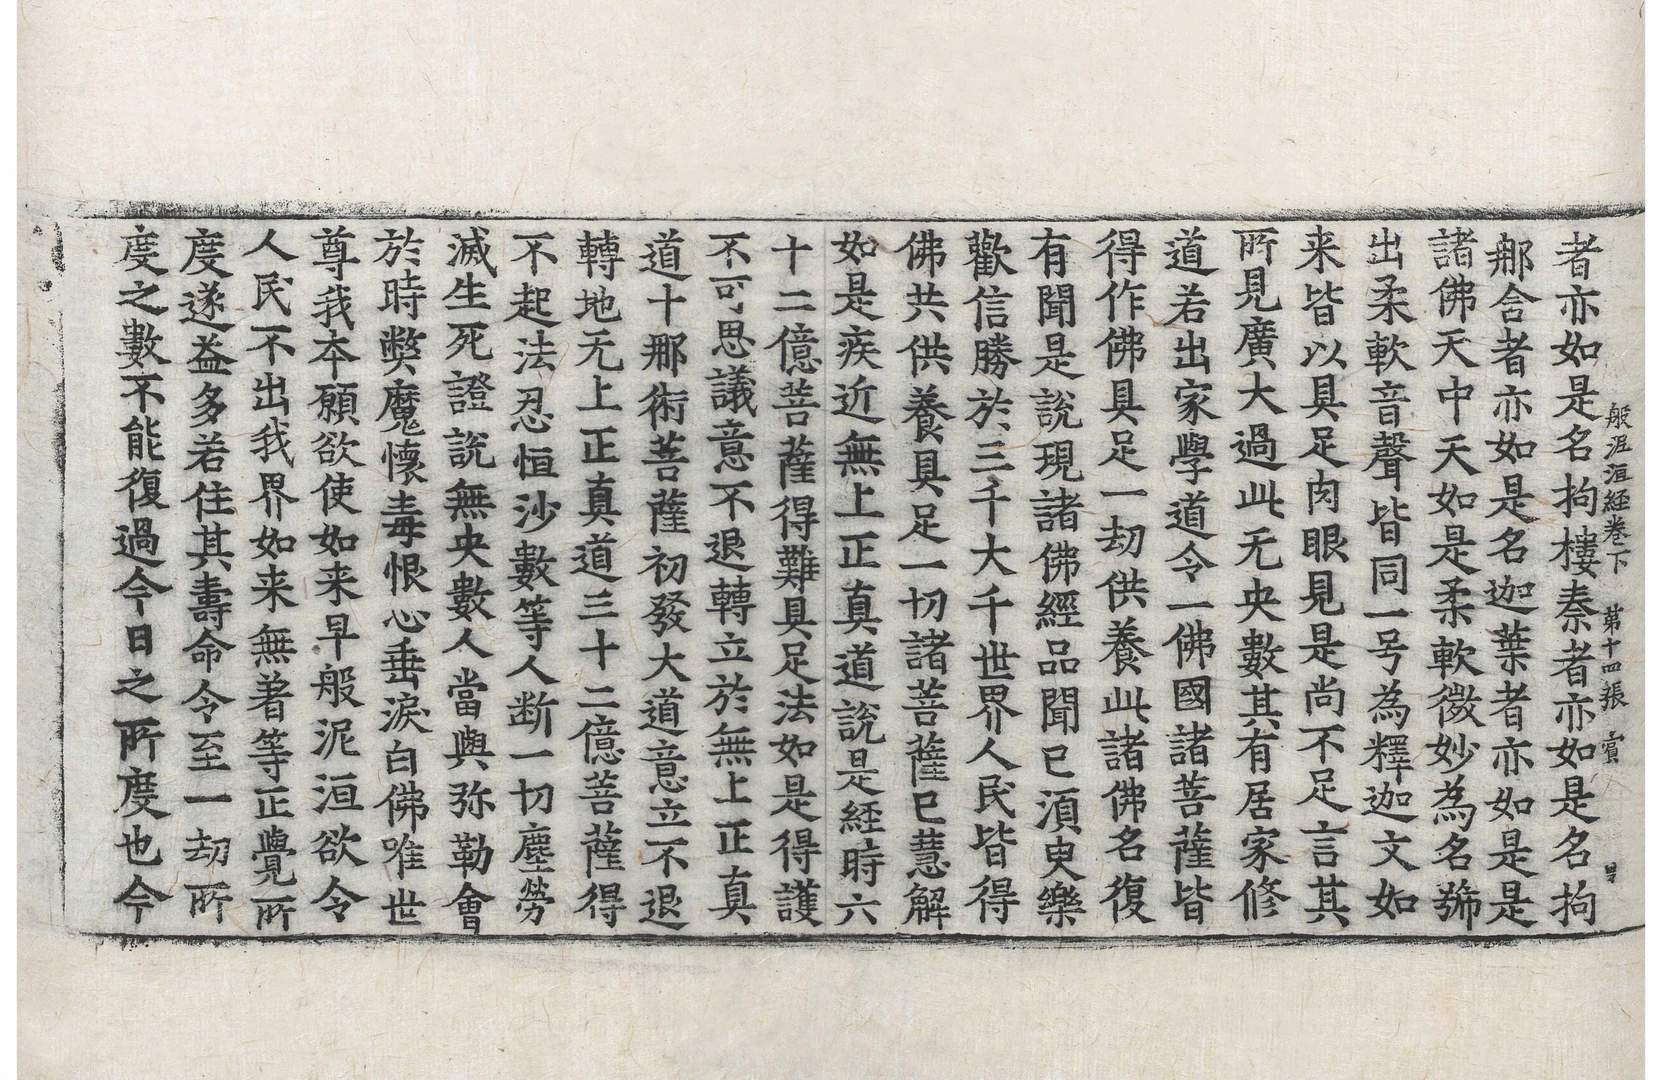 般泥洹經卷下 第十四張 賞
者亦如是名拘樓秦者亦如是名拘
那含者亦如是名迦葉者亦如是是
諸佛天中天如是柔軟微妙為名號
出柔軟音聲皆同一号為釋迦文如
来皆以具足肉眼見是尚不足言其
所見廣大過此无央數其有居家修
道若出家學道令一佛國諸菩薩皆
得作佛具足一劫供養此諸佛名復
有聞是說現諸佛經品聞已湏臾樂
歡信勝於三千大千世界人民皆得
佛共供養具足一切諸菩薩已慧解
如是疾近無上正真道說是經時六
十二億菩薩得難具足法如是得護
不可思議意不退轉立於無上正真
道十那術菩薩初發大道意立不退
轉地无上正真道三十二億菩薩得
不起法忍恒沙數等人断一切塵勞
滅生死證說無央數人當與弥勒會
於時弊魔懷毒恨心垂淚白佛唯世
尊我本願欲使如来早般泥洹欲令
人民不出我界如来無著等正覺所
度遂益多若住其壽命令至一劫所
度之數不能復過今日之所度也今